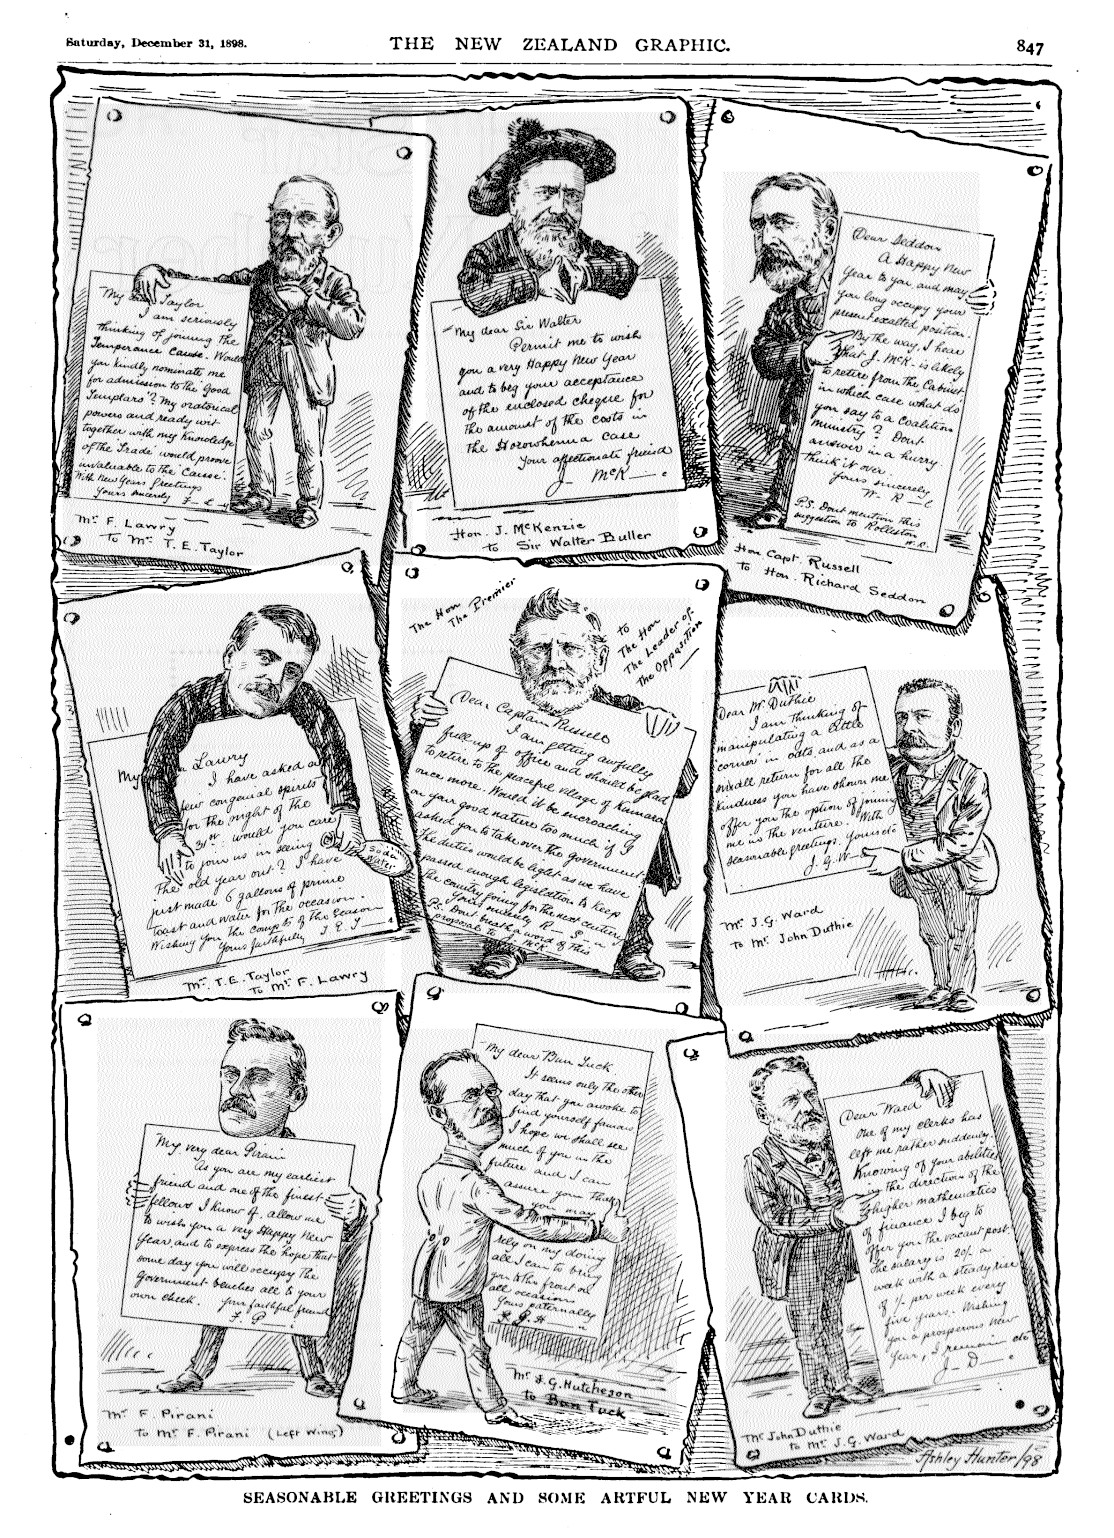 Saturday, December 31, 1898.
THE NEW ZEALAND GRAPHIC.
847
My dear Taylor
I am seriously
thinking of joining the
Temperance Cause. Would
you kindly nominate me
for admission to the Good
Templars? My oratorical
powers and ready wit
together with my knowledge
of the 'Trade' would prove
invaluable to the Cause.
With New Years Greetings
Yours sincerely F— L—y
Mr F. Lawry
to Mr T. E. Taylor
My dear Sir Walter
Permit me to wish
you a very Happy New Year
and to beg your acceptance
of the enclosed cheque for
the amount of the costs in
the Horowhenua case
Your affectionate friend
J— McK—e
Hon. J. McKenzie
to Sir Walter Buller
Dear Seddon
A Happy New
Year to you, and may
you long occupy your
present exalted position.
By the way, I hear
that J. McK. is likely
to retire from the Cabinet
in which case what do
you say to a Coalition
ministry? Dont
answer in a hurry
think it over.
Yours sincerely
W— R—l
P.S. Dont mention this
suggestion to Rolleston
W. R.
Hon Capt. Russell
to Hon. Richard Seddon
My Lawry
I have asked a
few congenial spirits
for the night of the
31st. would you care
to join us in seeing
the old year out? I have
just made 6 gallons of prime
toast and water for the occasion.
Wishing you the compts of the Season
Yours faithfully T. E. T—
Soda
Water
Mr T. E. Taylor
To Mr F. Lawry
The Hon
The Premier
to
The Hon
The Leader of
the Opposition
Dear Captain Russell
I am getting awfully
full up of office and should be glad
to retire to the peaceful village of Kumara
once more. Would it be encroaching
on your good nature too much if I
asked you to take over the government
The duties would be light as we have
passed enough legislation to keep
the country going for the next century
Yours sincerely R— S—n
P.S. Dont breathe a word of this
proposal to J. McK.
Dear Mr Duthie
I am thinking of
manipulating a little
'corner' in oats and as a
small return for all the
kindness you have shown me
offer you the option of joining
me in the venture. With
seasonable greetings. Yours etc
J. G. W—
Mr J. G. Ward
to Mr John Duthie
My very dear Pirani
As you are my earliest
friend and one of the finest
fellows I know of, allow me
to wish you a very Happy New
Year and to express the hope that
some day you will occupy the
Government benches all to your
own cheek. Your faithful friend
F. P—i
Mr F. Pirani
to Mr F. Pirani (Left Wing)
My dear Ban Tuck.
It seems only the other
day that you awoke to
find yourself famous
I hope we shall see
much of you in the
future and I can
assure you that
you may
rely on my doing
all I can to bring
you to the front on
all occasions
Yours paternally
J. G. H—n
Mr J. G. Hutcheson
to Ban Tuck
Dear Ward
One of my clerks has
left me rather suddenly.
Knowing of your abilities
in the direction of the
higher mathematics
of finance I beg to
offer you the vacant post.
The salary is 20/- a
week with a steady rise
of 1/- per week every
five years. Wishing
you a prosperous New
Year, I remain etc
J— D—e
Mr John Duthie
to Mr J. G. Ward
Ashley Hunter/98
SEASONABLE GREETINGS AND SOME ARTFUL NEW YEAR CARDS.